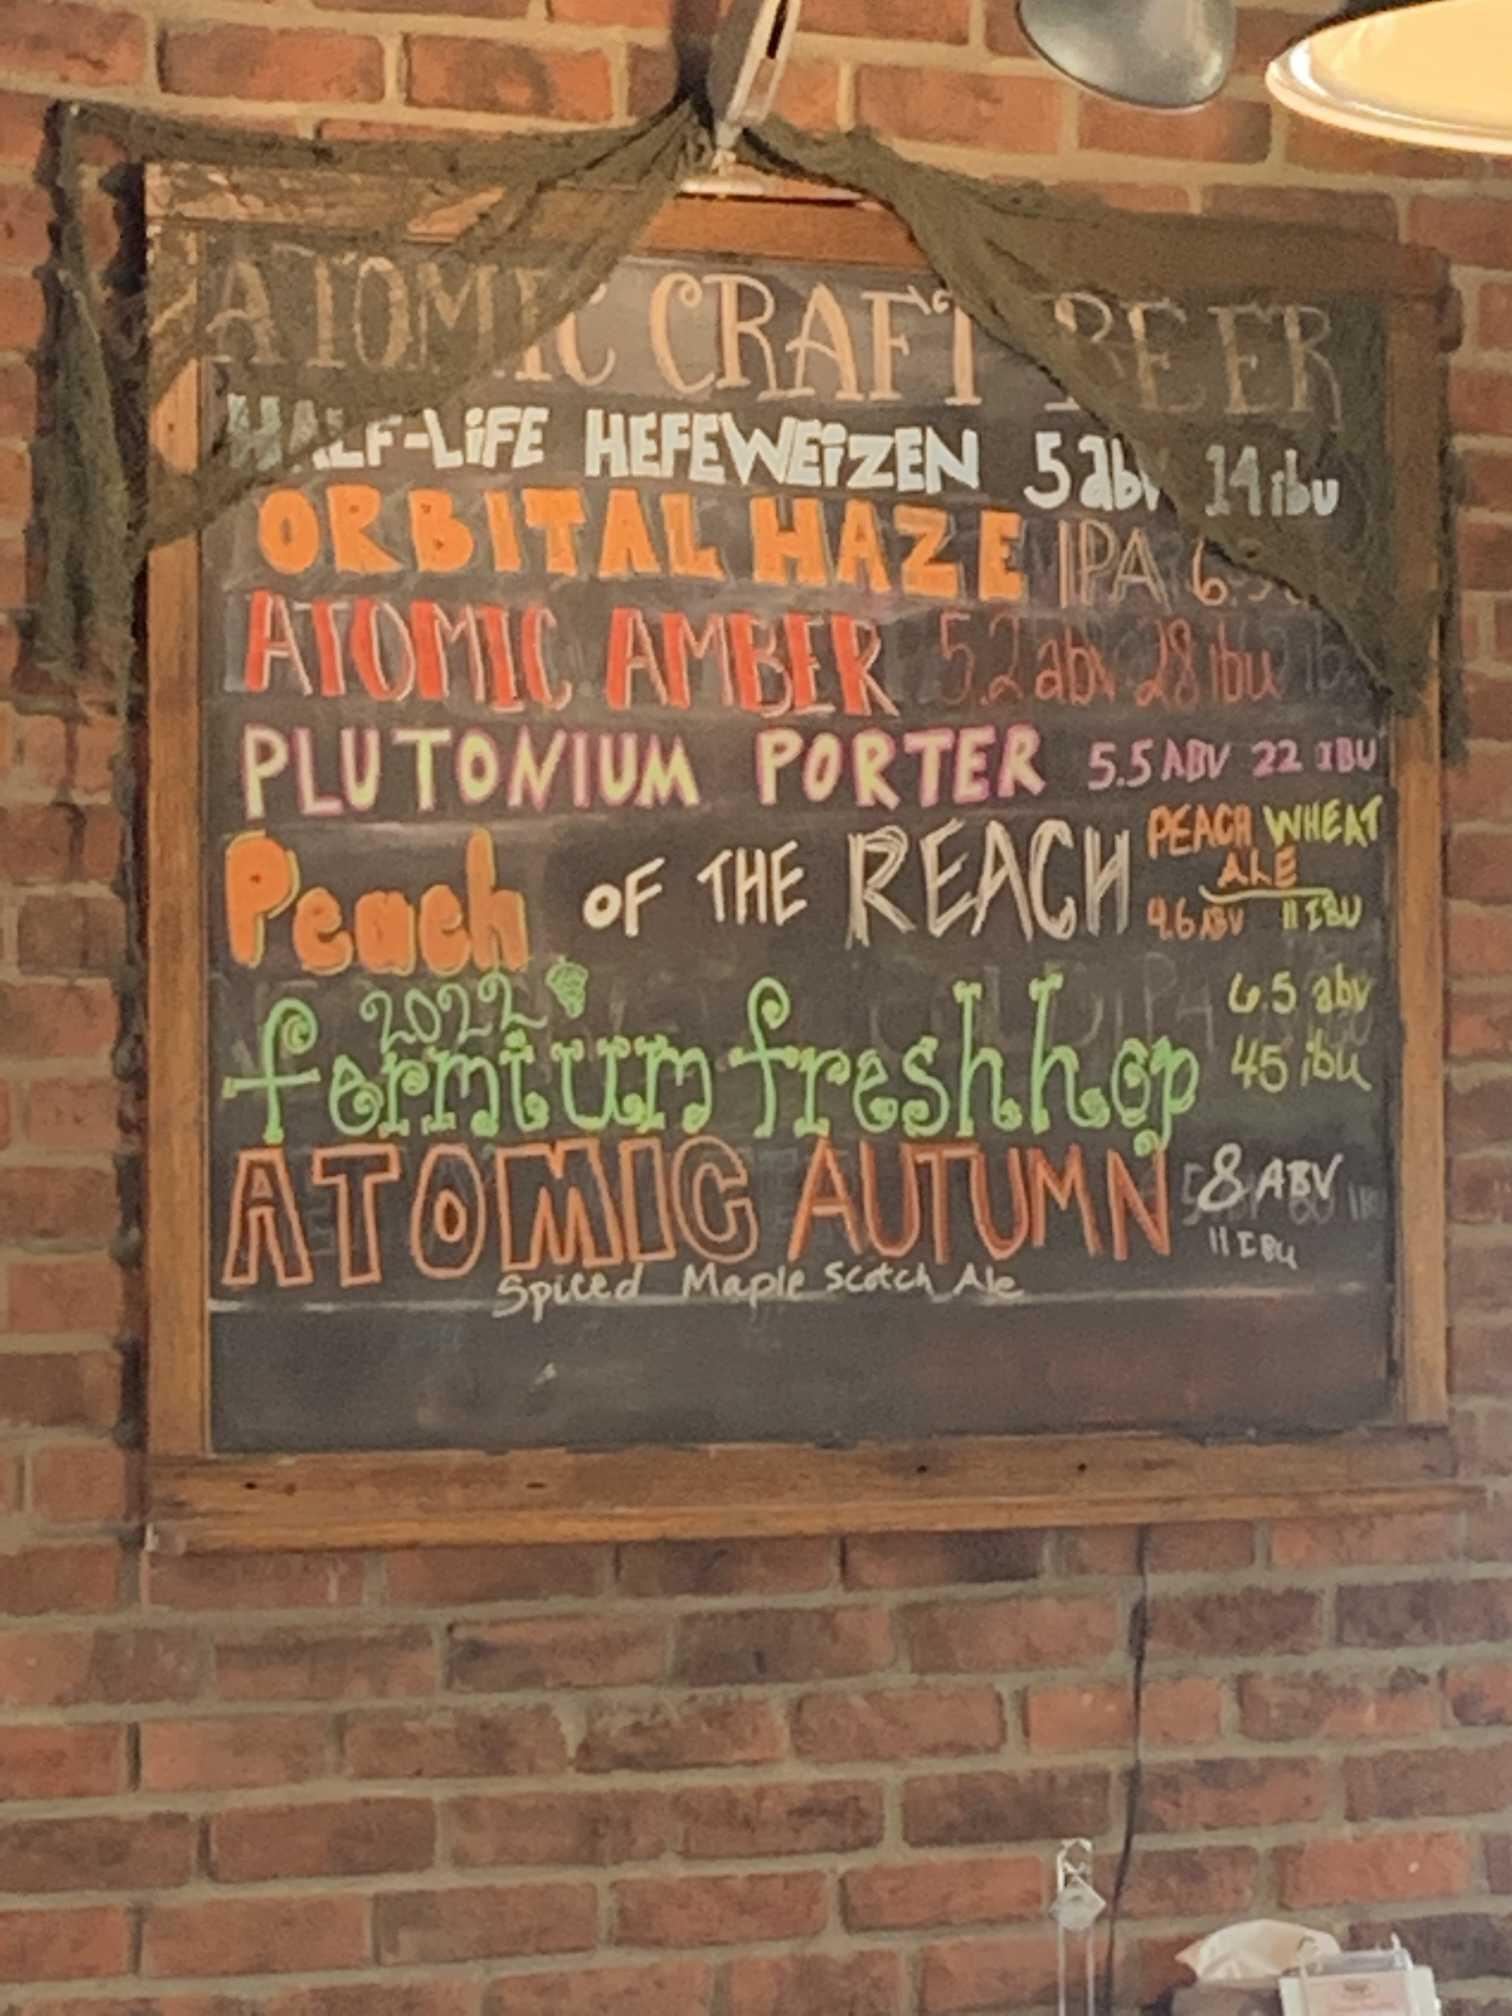 ATOMIC CRAFT BEER
HALF-LiFE HEFEWEiZEN 5 abv 14 ibu
ORBITAL HAZE IPA
ATOMIC AMBER 5.2 abv 28 ibu
PLUTONIUM PORTER 5.5 ABV 22 IBU
Peach OF THE REACH PEACH WHEAT
ALE
4.6 ABV 11 IBU
2022
fermium fresh hop 6.5 abv
45 ibu
ATOMIC AUTUMN 8 ABV
11 IBU
Spiced Maple Scotch Ale